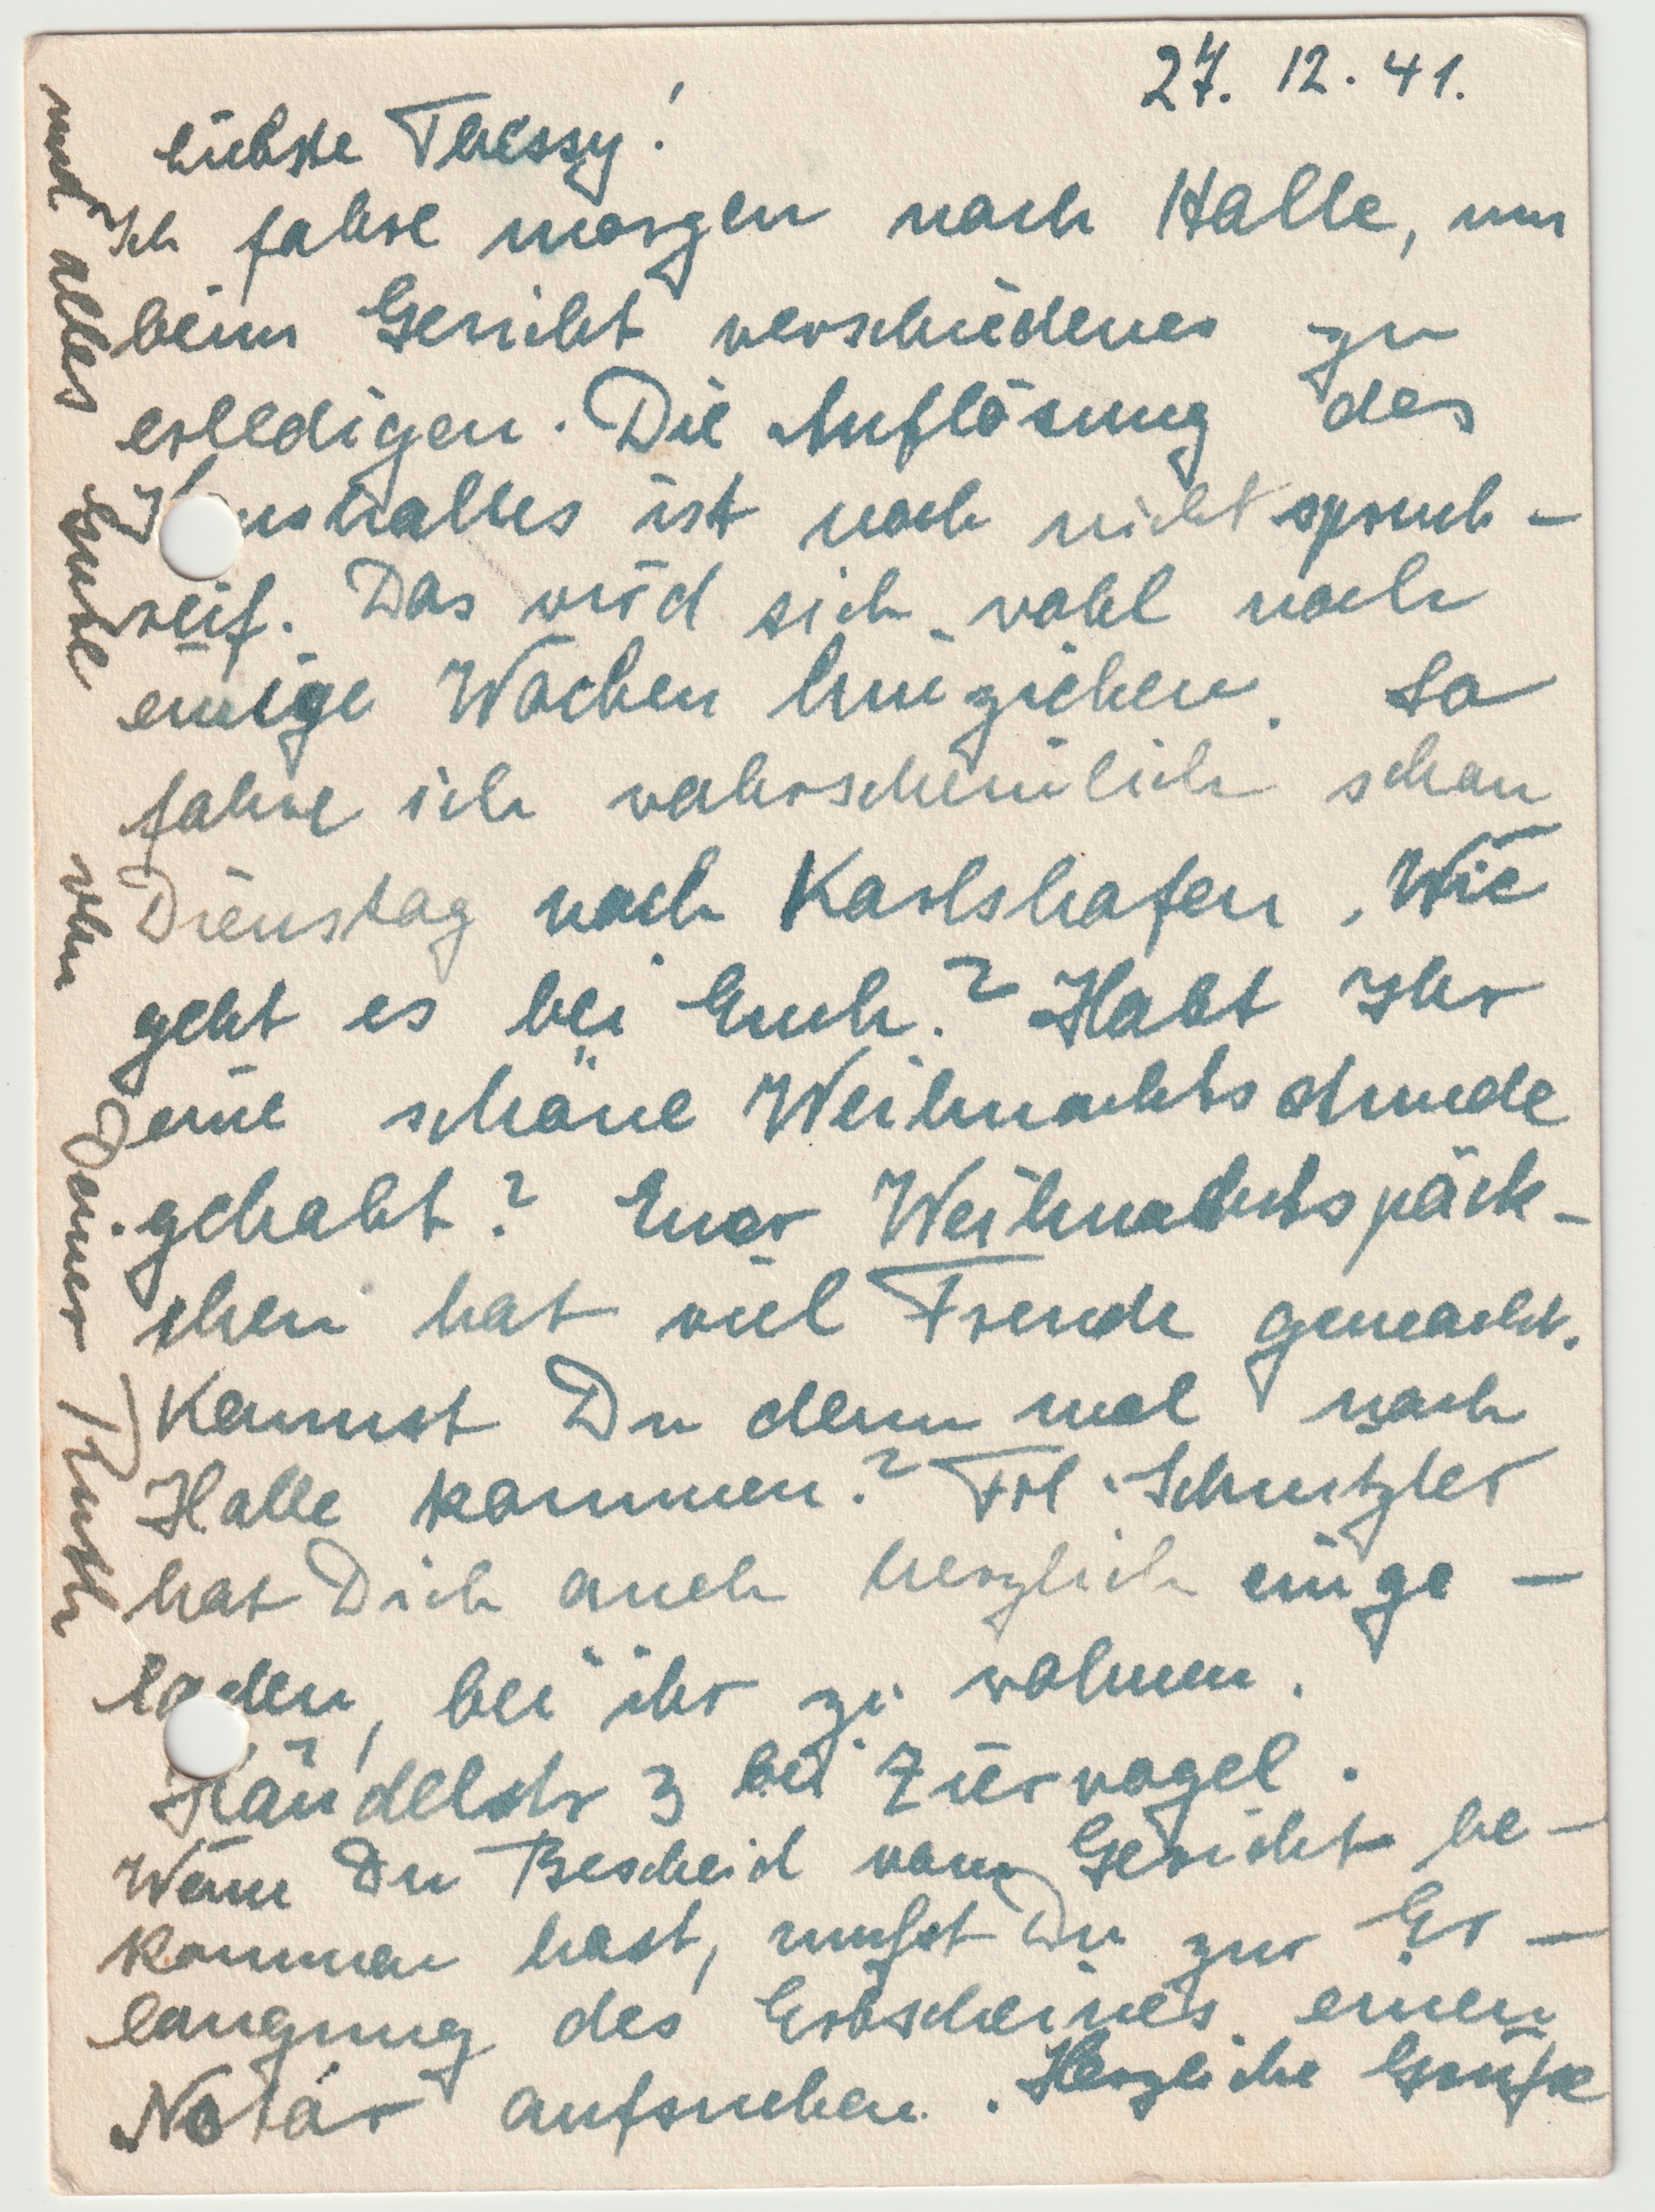 27. 12. 41.
Liebste Thessy!
Ich fahre morgen nach Halle, um
beim Gericht verschiedenes zu
erledigen. Die Auflösung des
Haushaltes ist noch nicht spruch-
reif. Das wird sich wohl noch
einige Wochen hinziehen. So
fahre ich wahrscheinlich schon
Dienstag nach Karlshafen. Wie
geht es bei Euch? Habt Ihr
eine schöne Weihnachtsstunde
gehabt? Euer Weihnachtspäck-
chen hat viel Freude gemacht.
Kannst Du denn mal nach
Halle kommen? Frl.
hat Dich auch herzlich einge-
laden, bei ihr zu wohnen.
Händelstr 3 bei Ziervogel.
Wenn Du Bescheid vom Gericht be-
kommen hast, mußt Du zur Er-
langung des Erbscheines einen
Notar aufsuchen. Herzliche Grüße
und alles Gute von Deiner Ruth